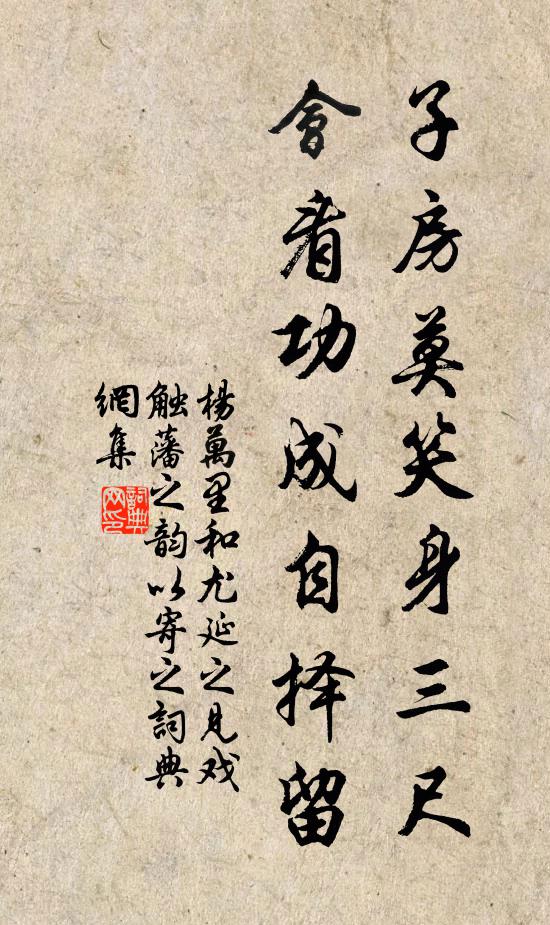 子房莫笑身三尺
會看功成自择留
楊萬里和尤延之見戏
触藩之韵以寄之詞典
網集
詞典
网印